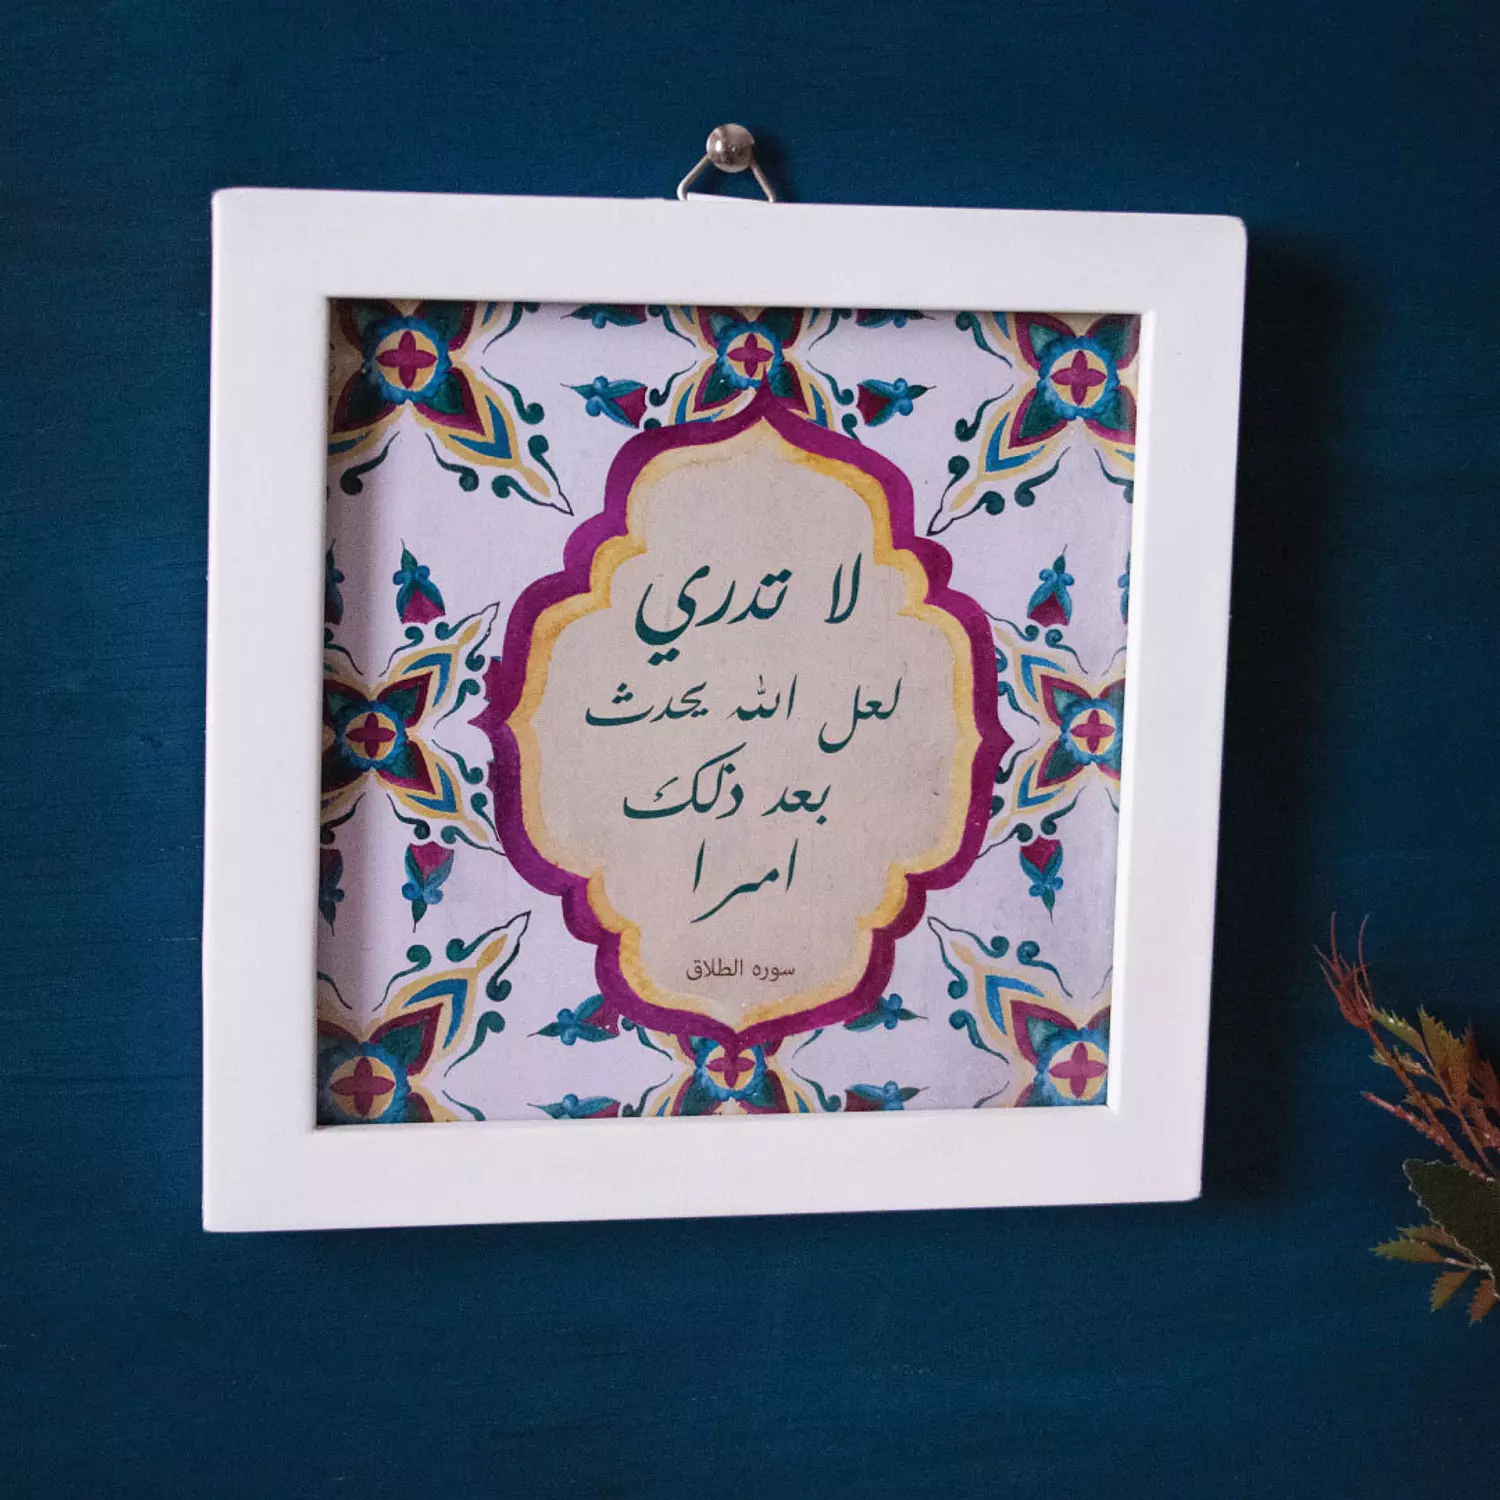 لا تدري
لعل الله يحدث
بعد ذلك
امرا
سوره الطلاق